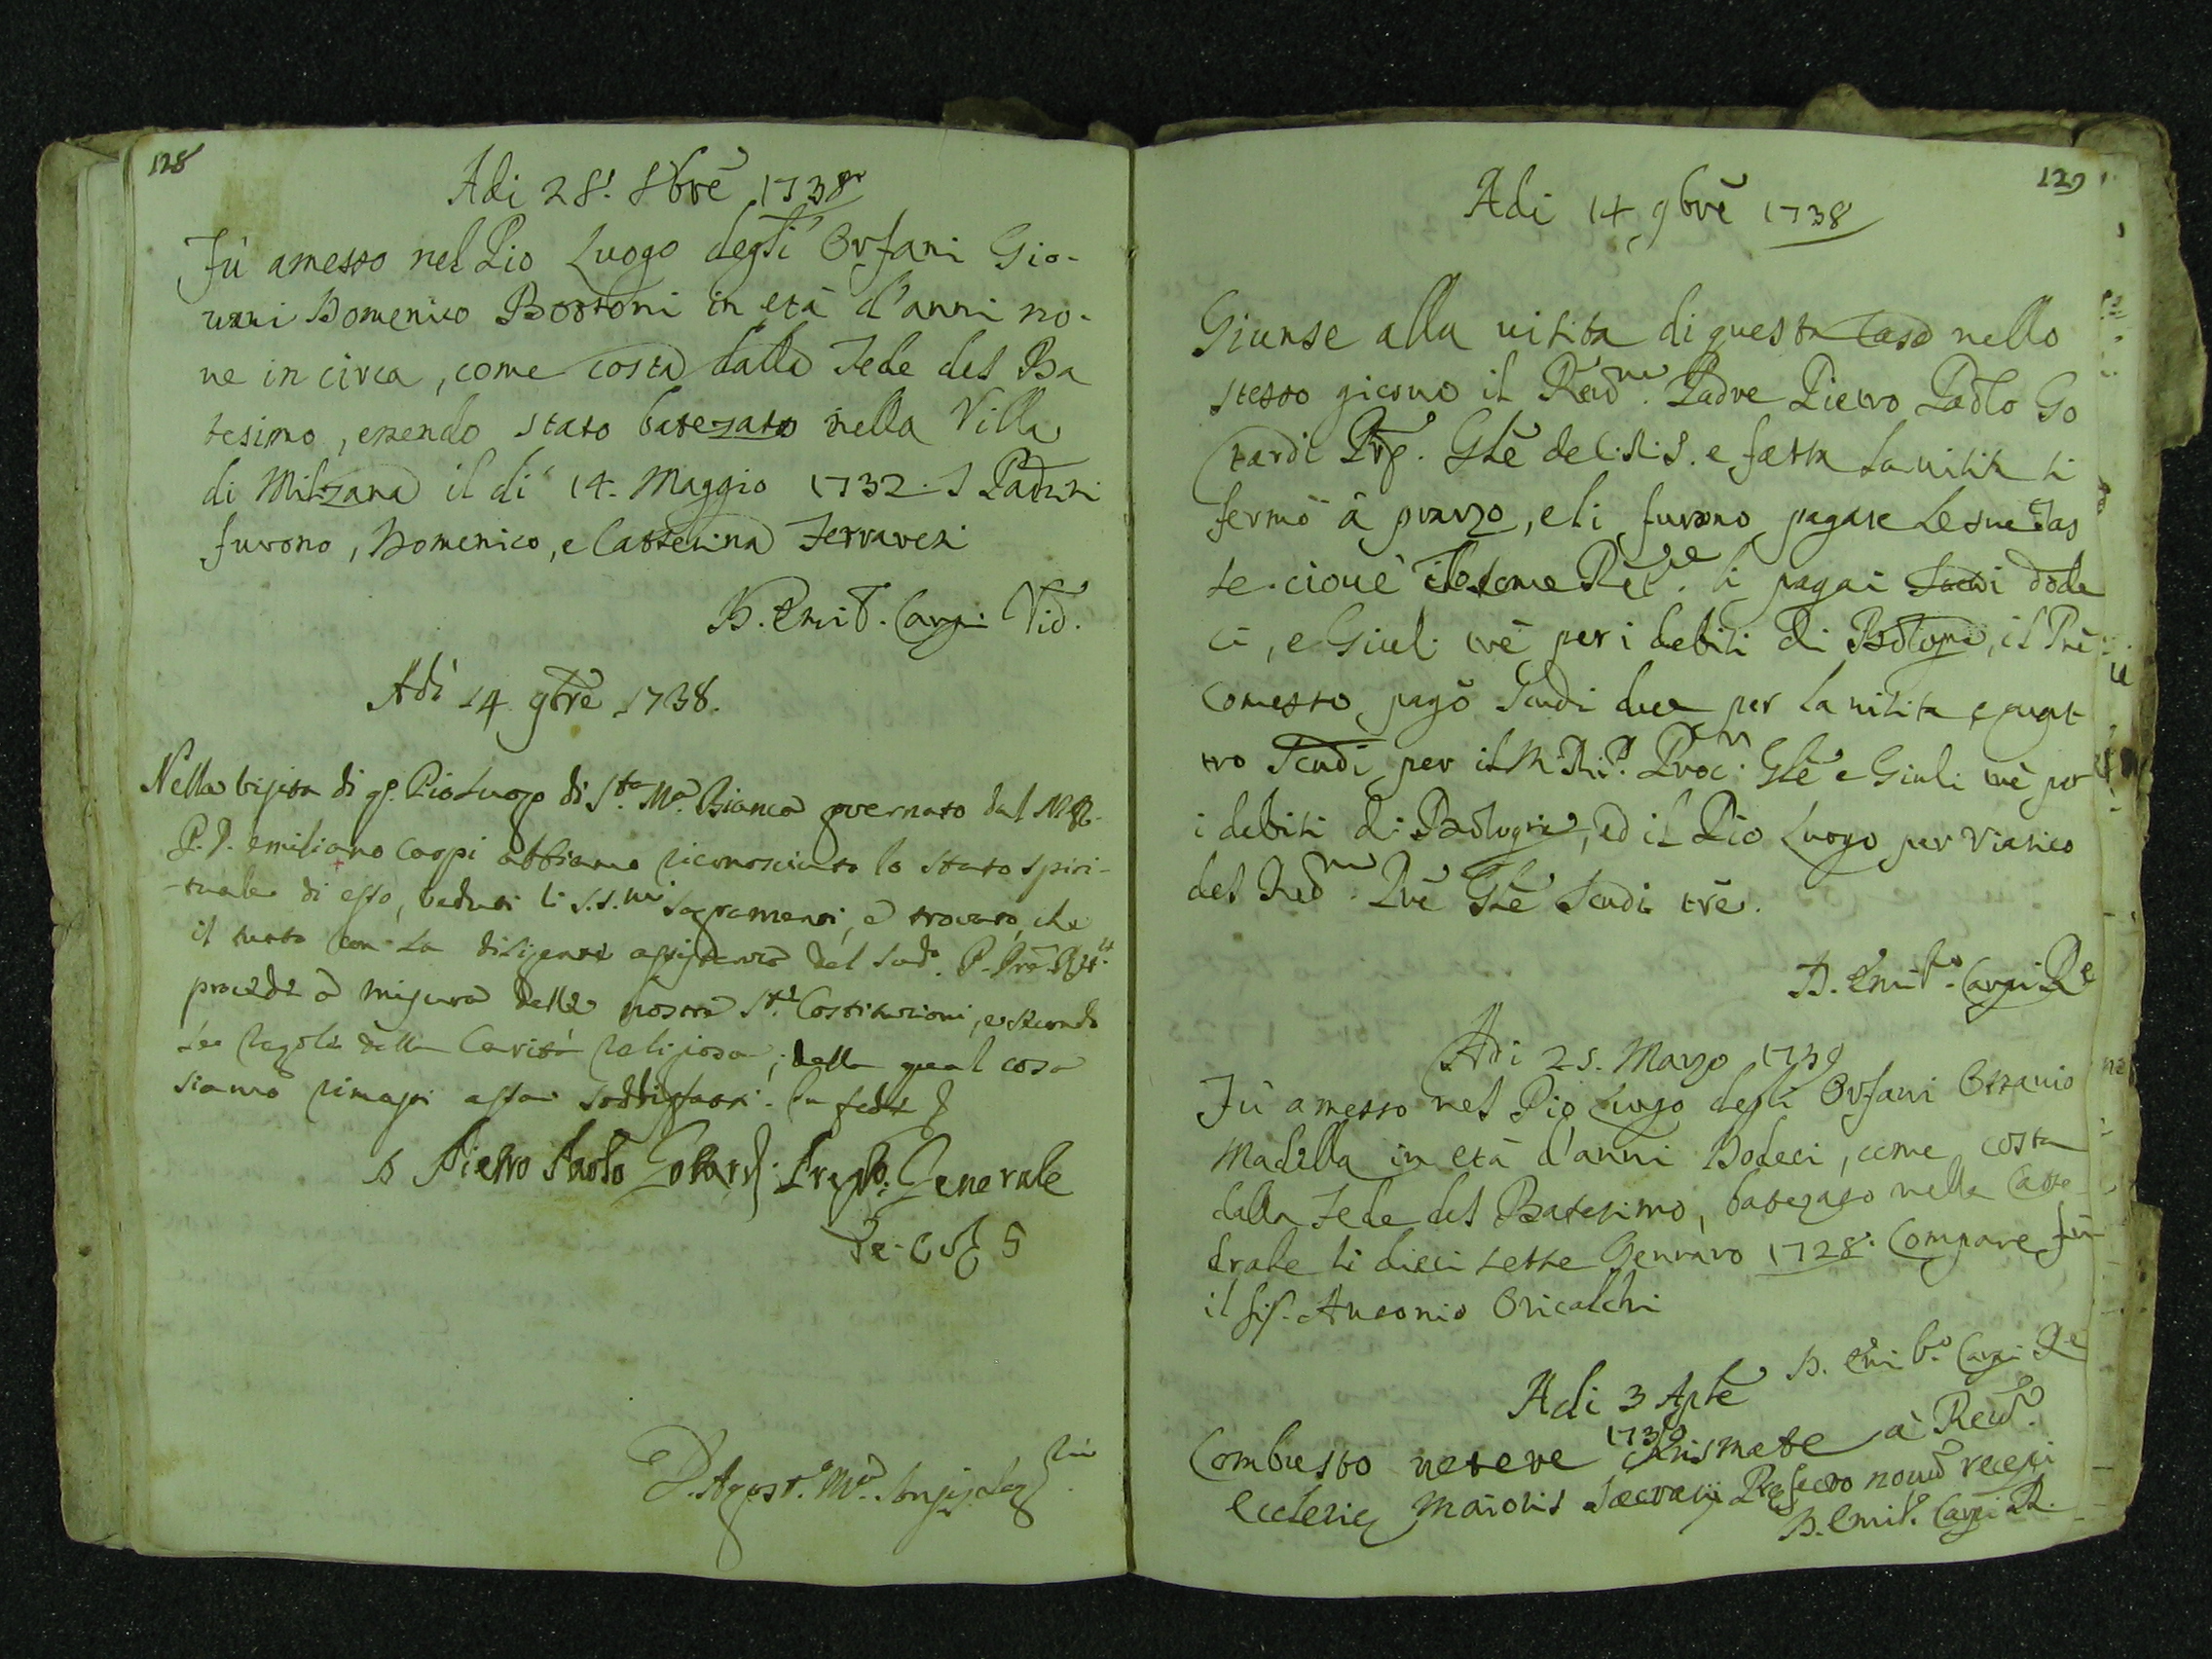 128
Adi 28. 8bre 1738
Fù amesso nel Pio Luogo degli Orfani Gio-
vani Domenico Bortoni in età d'anni no-
ve in circa, come costa dalla Fede del Ba
tesimo, essendo stato batezato nella Villa
di Milzana il di 14. Maggio 1732. I Padrini
furono, Domenico, e Catterina Ferraresi
D. Emil. Carpi Vic.
Adi 14 9bre 1738.
Nella visita di qs. Pio Luogo di Sta Ma. Bianca governato dal M.R.
P.D. emiliano Carpi abbiamo riconosciuto lo stato spiri-
tuale di esso, veduti li S.S.mi Sagramenti, e trovato, che
il tutto con la diligente assistenza del Sudo. P. Pre. Rett.
procede a misura delle nostre Ste. Costituzioni, e secondo
Le Regole della Carità religiosa; della qual cosa
siamo rimasti assai soddisfatti. In fede
D Pietro Paolo Gotardi Prepto. Generale
De. C. S.
D. Agost. Ma.
129
Adi 14 9bre 1738
Giunse alla visita di questa Casa nello
stesso giorno il Revmo. Padre Pietro Paolo Go
tardi Prp. Gle de C.R.S. e fatta la visita si
fermò à pranzo, e li furono pagate le sue Tas
se. cioué Io come Ret.re li pagai Scudi dode
ci, e Giuli trè per i debiti di Bologna, il Pre
Comesso pagò Scudi due per la visita, e quat
tro Scudi per il M.R.P. Proc. Gle e Giuli trè per
i debiti di Bologna, ed il Pio Luogo per Viatico
del Redmo. Pre Gle Scudi trè.
D. Emilo. Carpi Re
Adi 25. Marzo 1739
Fù amesso nel Pio Luogo degli Orfani Ottavio
Madella in età d'anni Dodeci, come costa
dalla Fede del Batesimo, batezato nella Catte
drale li dieci sette Gennaro 1728. Compare fù
il Sig. Antonio Oricalchi
D. Emilo. Carpi Re
Adi 3 Aple
1739
Combusto vetere Chrismate à Revd.
Ecclesiæ Maioris Sacrarij Præfecto novum recepi
D. Emil. Carpi R.